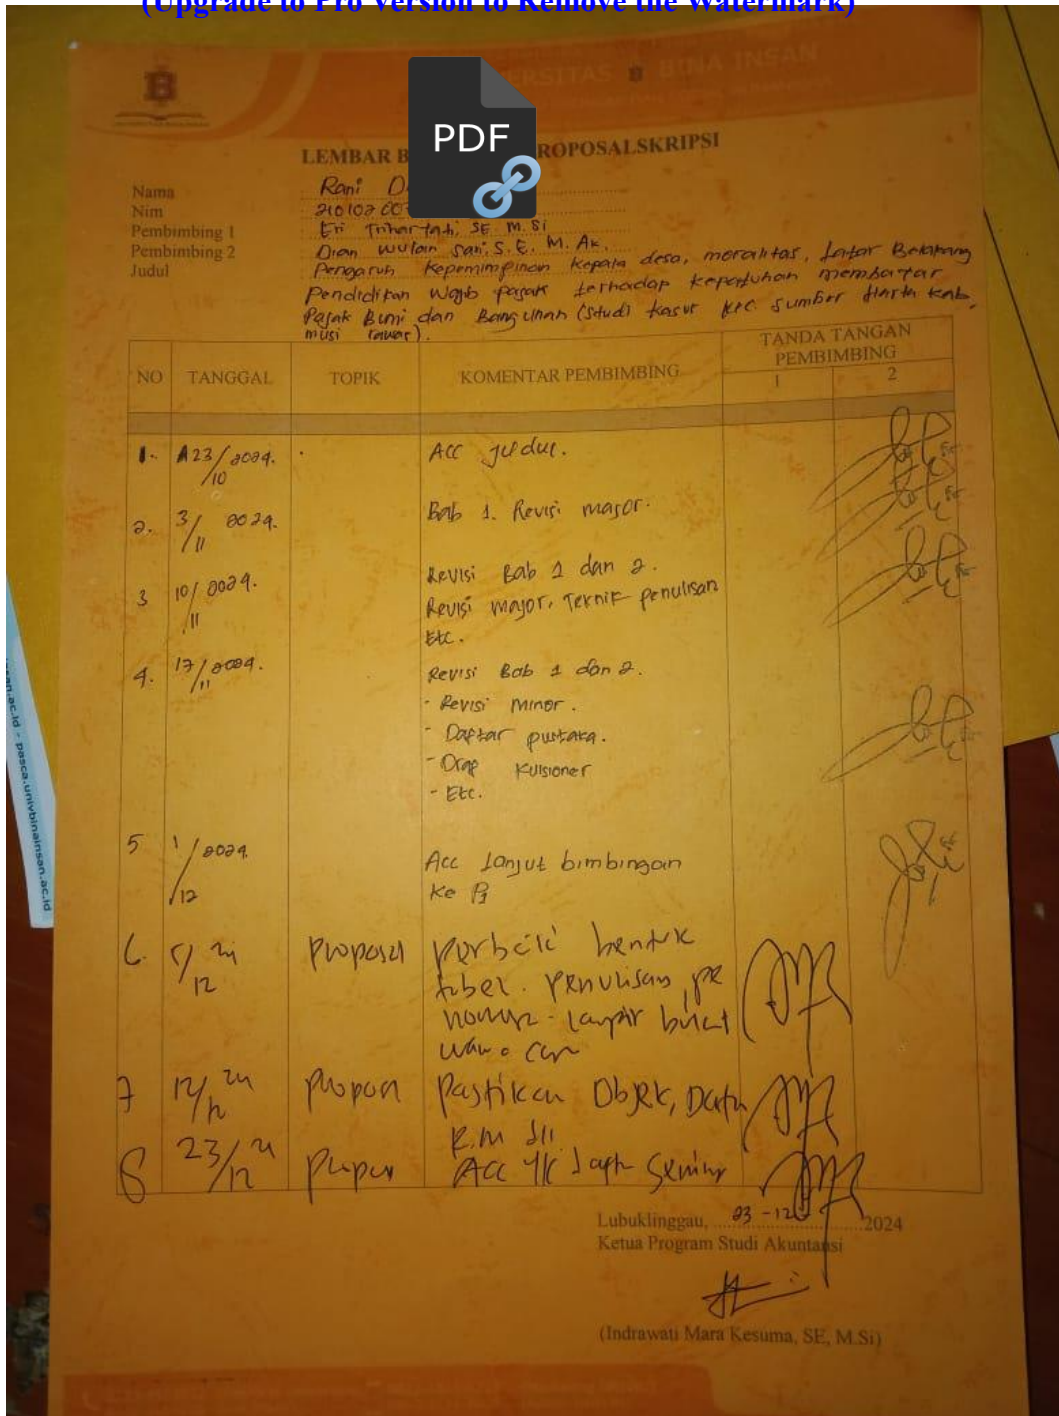 (Upgrade to Pro Version to Remove the Watermark)
UNIVERSITAS B BINA INSAN
PDF
LEMBAR B ROPOSALSKRIPSI
Nama Rani D
Nim 2101020
Pembimbing 1 Eri Trihartati, SE M.Si
Pembimbing 2 Dian Wulan Sari. S.E. M. Ak.
Judul Pengaruh Kepemimpinan Kepala desa, moralitas, Latar Belakang
Pendidikan Wajib pajak terhadap kepatuhan membayar
Pajak Bumi dan Bangunan (Studi kasus Kec. Sumber Harta Kab.
musi rawas).
NO TANGGAL TOPIK KOMENTAR PEMBIMBING TANDA TANGAN PEMBIMBING
1 2
1. 23/10 2024. Acc Judul.
2. 3/11 2024. Bab 1. Revisi mayor.
3 10/11 2024. Revisi Bab 1 dan 2.
Revisi mayor, Teknik penulisan
Etc.
4. 17/11 2024. Revisi Bab 1 dan 2.
- Revisi Minor.
- Daftar pustaka.
- Drap Kuisioner
- Etc.
5 1/12 2024 Acc Lanjut bimbingan
Ke P1
6. 5/12 24 Proposal perbaiki bentuk
tabel. Penulisan
nomor - lampir
7 12/12 24 Proposal pastikan Objek, Data
dll
8 23/12 24 Acc Seminar
Lubuklinggau, 23 - 12 2024
Ketua Program Studi Akuntansi
(Indrawati Mara Kesuma, SE, M.Si)
san.ac.id - pasca.univbinainsan.ac.id